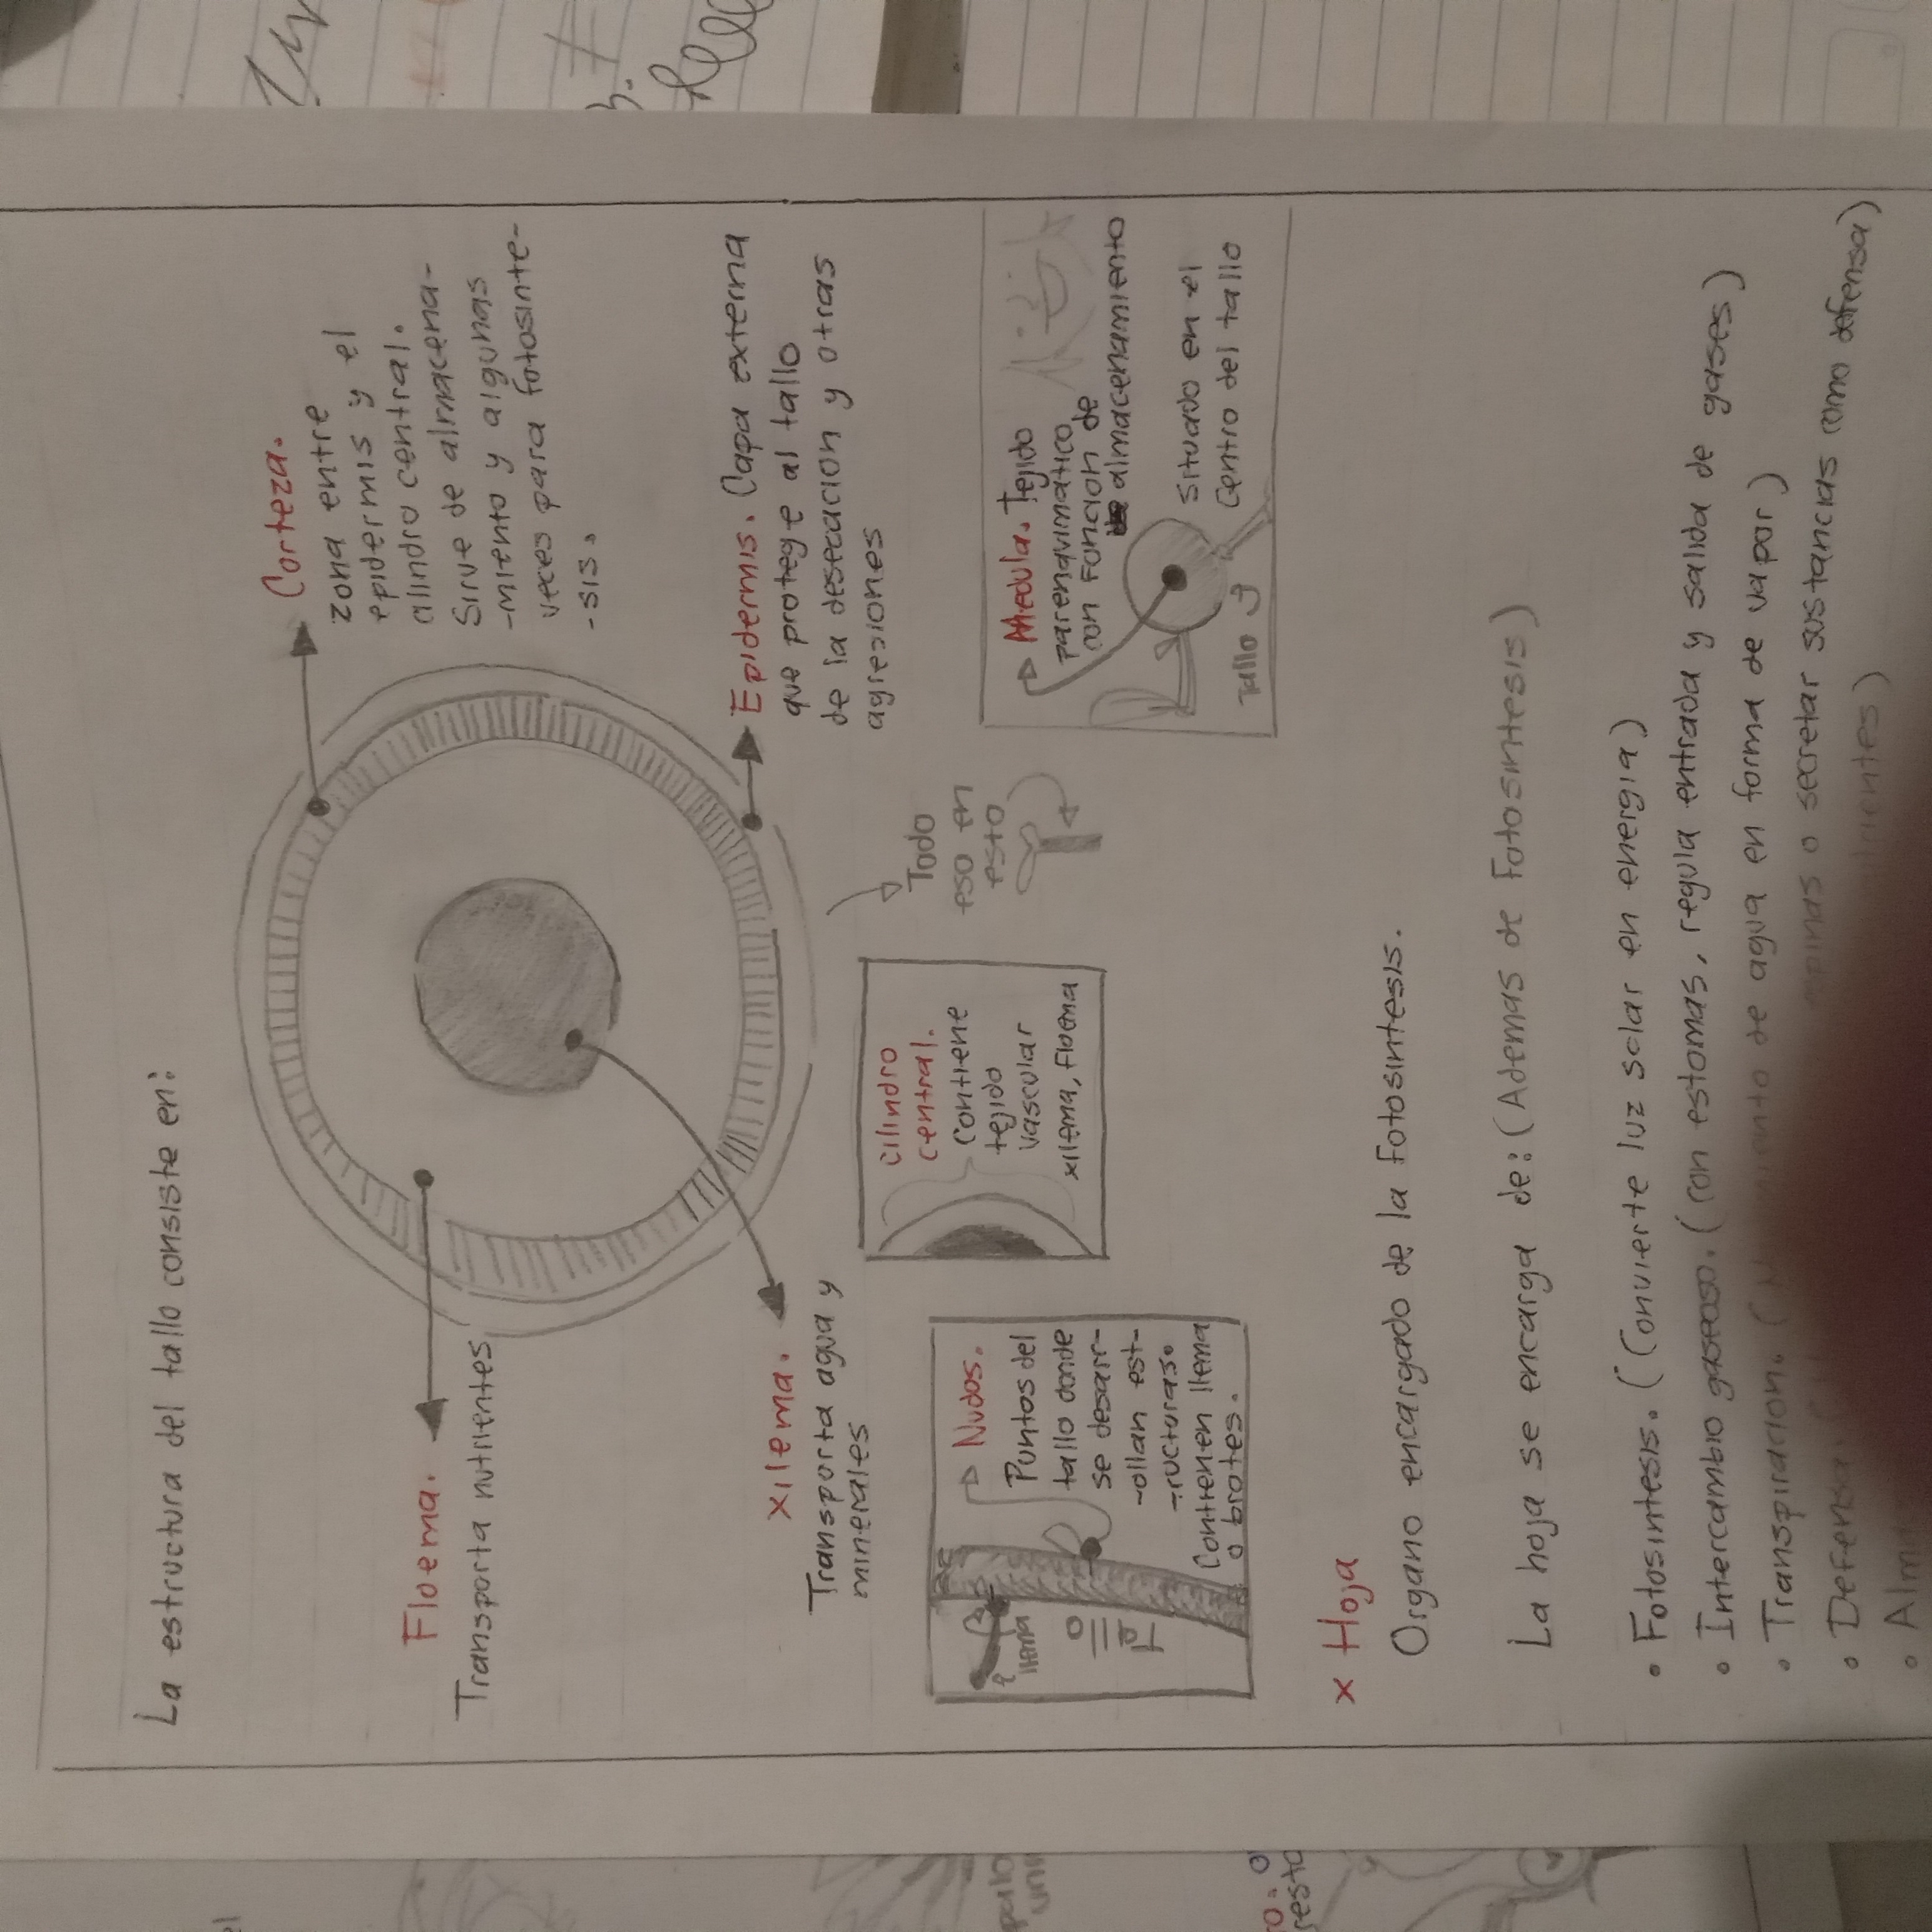 La estructura del tallo consiste en:
Corteza.
zona entre
epidermis y el
cilindro central.
Sirve de almacena-
-miento y algunas
veces para fotosinte-
-sis.
Floema.
Transporta nutrientes
Epidermis. Capa externa
que protege al tallo
de la desecacion y otras
agresiones
xilema.
Transporta agua y
minerales
Todo
eso en
esto
Nudos.
Puntos del
tallo donde
se desarr-
-ollan est-
-ructuras.
Contienen llema
o brotes.
llema
cilindro
central.
Contiene
tejido
vascular
xilema, Floema
Medula. Tejido
parenquimatico
con funcion de
almacenamiento
Situado en el
Centro del tallo
Tallo
x Hoja
Organo encargado de la Fotosintesis.
La hoja se encarga de: (Ademas de Fotosintesis)
• Fotosintesis. (Convierte luz solar en energia)
• Intercambio gaseoso. (con estomas, regula entrada y salida de gases)
• Transpiracion. ( de agua en forma de vapor)
• Defensa. o secretar sustancias como defensa)
•